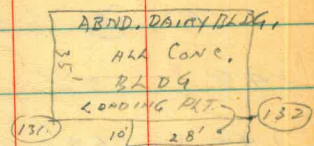 ABND. DAIRY BLDG.
35'
ALL CONC.
BLDG
LOADING PLT.
131 10' 28' 132